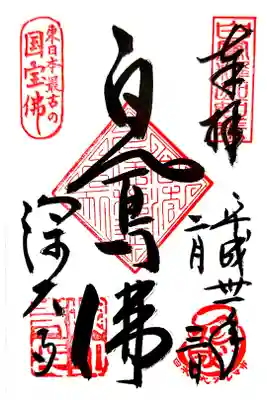 奉拝
平成卅一年
二月三日
白鳳佛
深大寺
東日本最古の
国宝佛